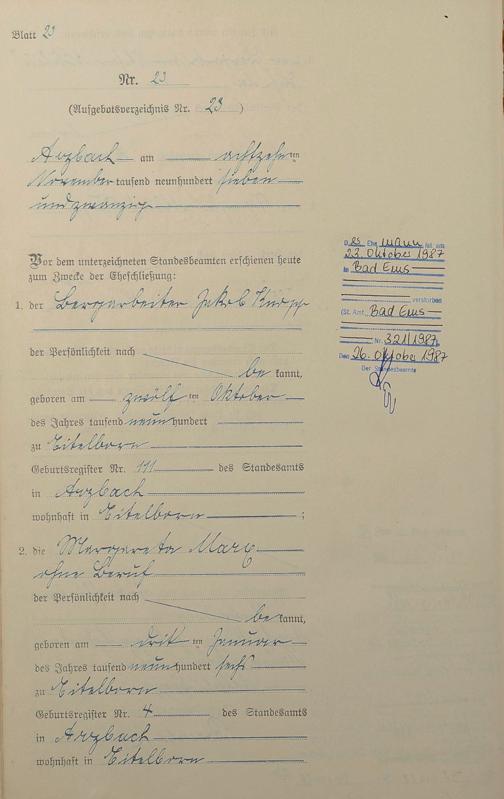 Blatt 23
Nr. 23
(Aufgebotsverzeichnis Nr. 23)
Arzbach am achtzehnten
November tausend neunhundert sieben
und zwanzig
Vor dem unterzeichneten Standesbeamten erschienen heute
zum Zwecke der Eheschließung:
1. der Bergarbeiter Jakob Knopp
der Persönlichkeit nach
be kannt,
geboren am zwölf ten Oktober
des Jahres tausend neun hundert
zu Eitelborn
Geburtsregister Nr. 111 des Standesamts
in Arzbach
wohnhaft in Eitelborn ;
2. die Margareta Marx
ohne Beruf
der Persönlichkeit nach
be kannt,
geboren am drit ten Januar
des Jahres tausend neun hundert sechs
zu Eitelborn
Geburtsregister Nr. 4 des Standesamts
in Arzbach
wohnhaft in Eitelborn
Der Ehemann ist am
23. Oktober 1987
in Bad Ems
verstorben
(St. Amt Bad Ems
Nr. 321/1987
Den 26. Oktober 1987
Der Standesbeamte